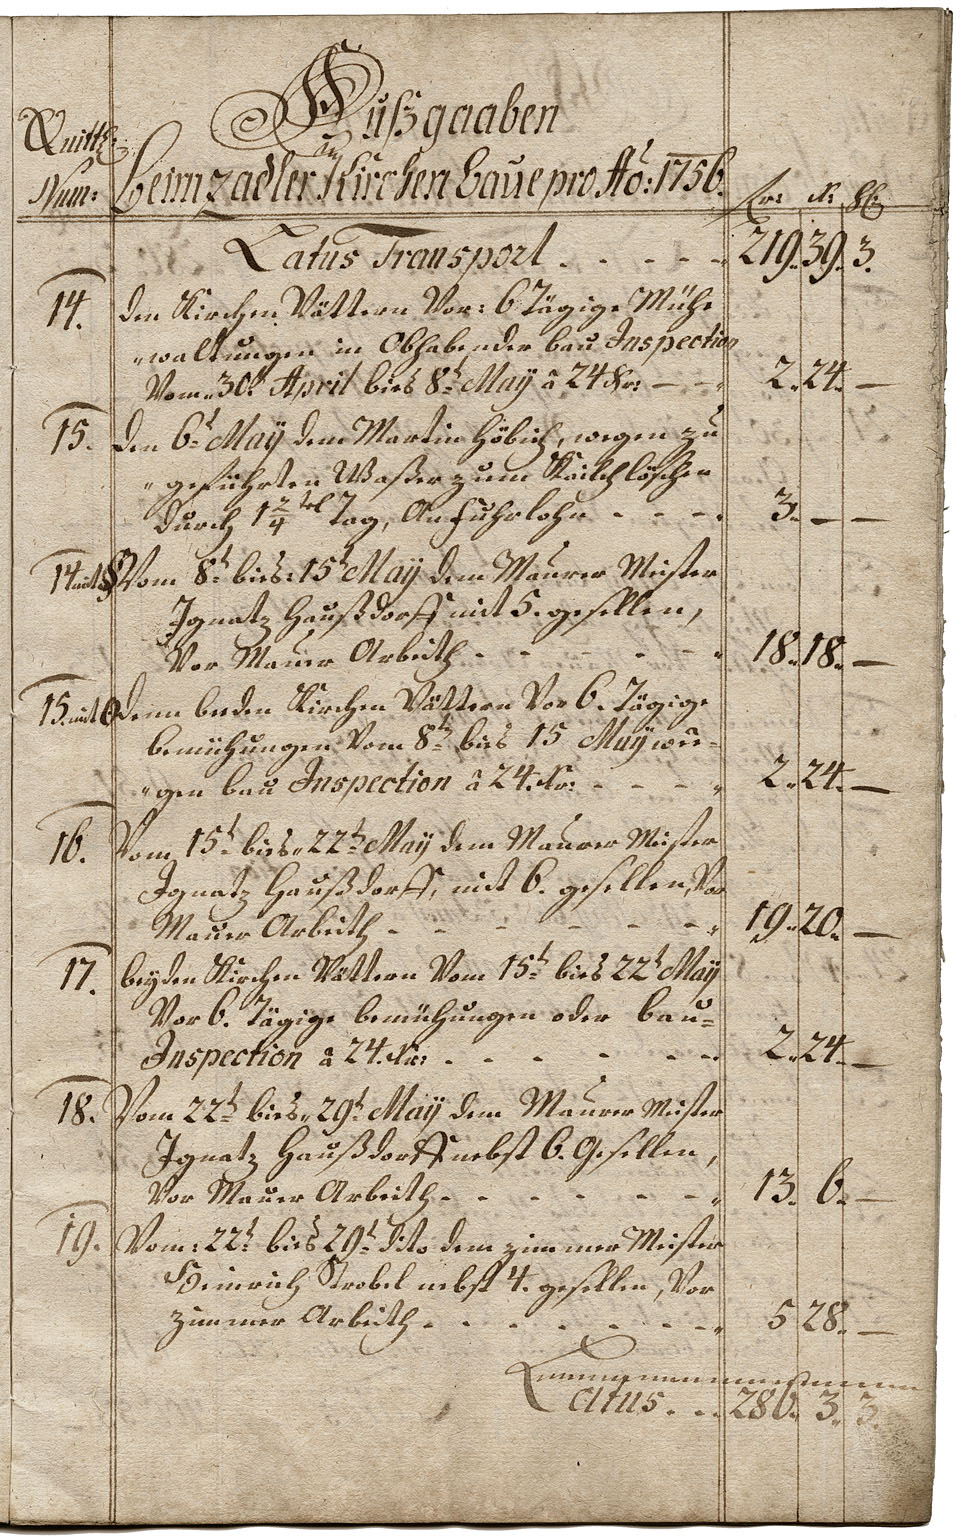 Außgaaben
Quitt:
Num:
beim Zadler Kirchen baue pro Ao: 1756.
fr: Kr: hl:
Latus Transport . - - - - „ 219. 39. 3.
14. den Kirchen Vättern Vor: 6 Tägige Mühe
„waltungen in Obhabender bau Inspection
Vom „30t April bies 8t May â 24 Kr: — - „ 2. 24. —
15. den 6t May dem Martin Höbich, wegen zu
„geführten Waßer zum Kalchlöschen
durch 1 2/4 tel Tag, Anfuhrlohn - - - . 3. — —
14 mit Vom 8t bies: 15t May dem Maurer Meister
Ignatz Haußdorff mit 5. gesellen,
Vor Mauer Arbeith - - - - - - „ 18. 18. —
15. mit denn beden Kirchen Vättern Vor 6. Tägige
bemühungen Vom 8t bies 15 May we=
„gen bau Inspection â 24. Kr: - - - - „ 2. 24. —
16. Vom 15t bies „22t May dem Maurer Meister
Ignatz Haußdorff, mit 6. gesellen, Vor
Mauer Arbeith - - - - - - - „ 19. 20. —
17. beyden Kirchen Vättern Vom 15t bies 22t May
Vor 6. Tägige bemühungen oder bau=
Inspection â 24. Kr: . - - - - - - 2. 24. —
18. Vom 22t bies „29t May dem Maurer Meister
Ignatz Haußdorff nebst 6. Gesellen,
Vor Mauer Arbeith - - - - - - - „ 13. 6. —
19. Vom: 22t bies 29t dito dem Zimmer Meister
Heinrich Strobel nebst 4. gesellen, Vor
Zimmer Arbeith . - - - - - - - „ 5 28. —
Latus . . . 286. 3. 3.